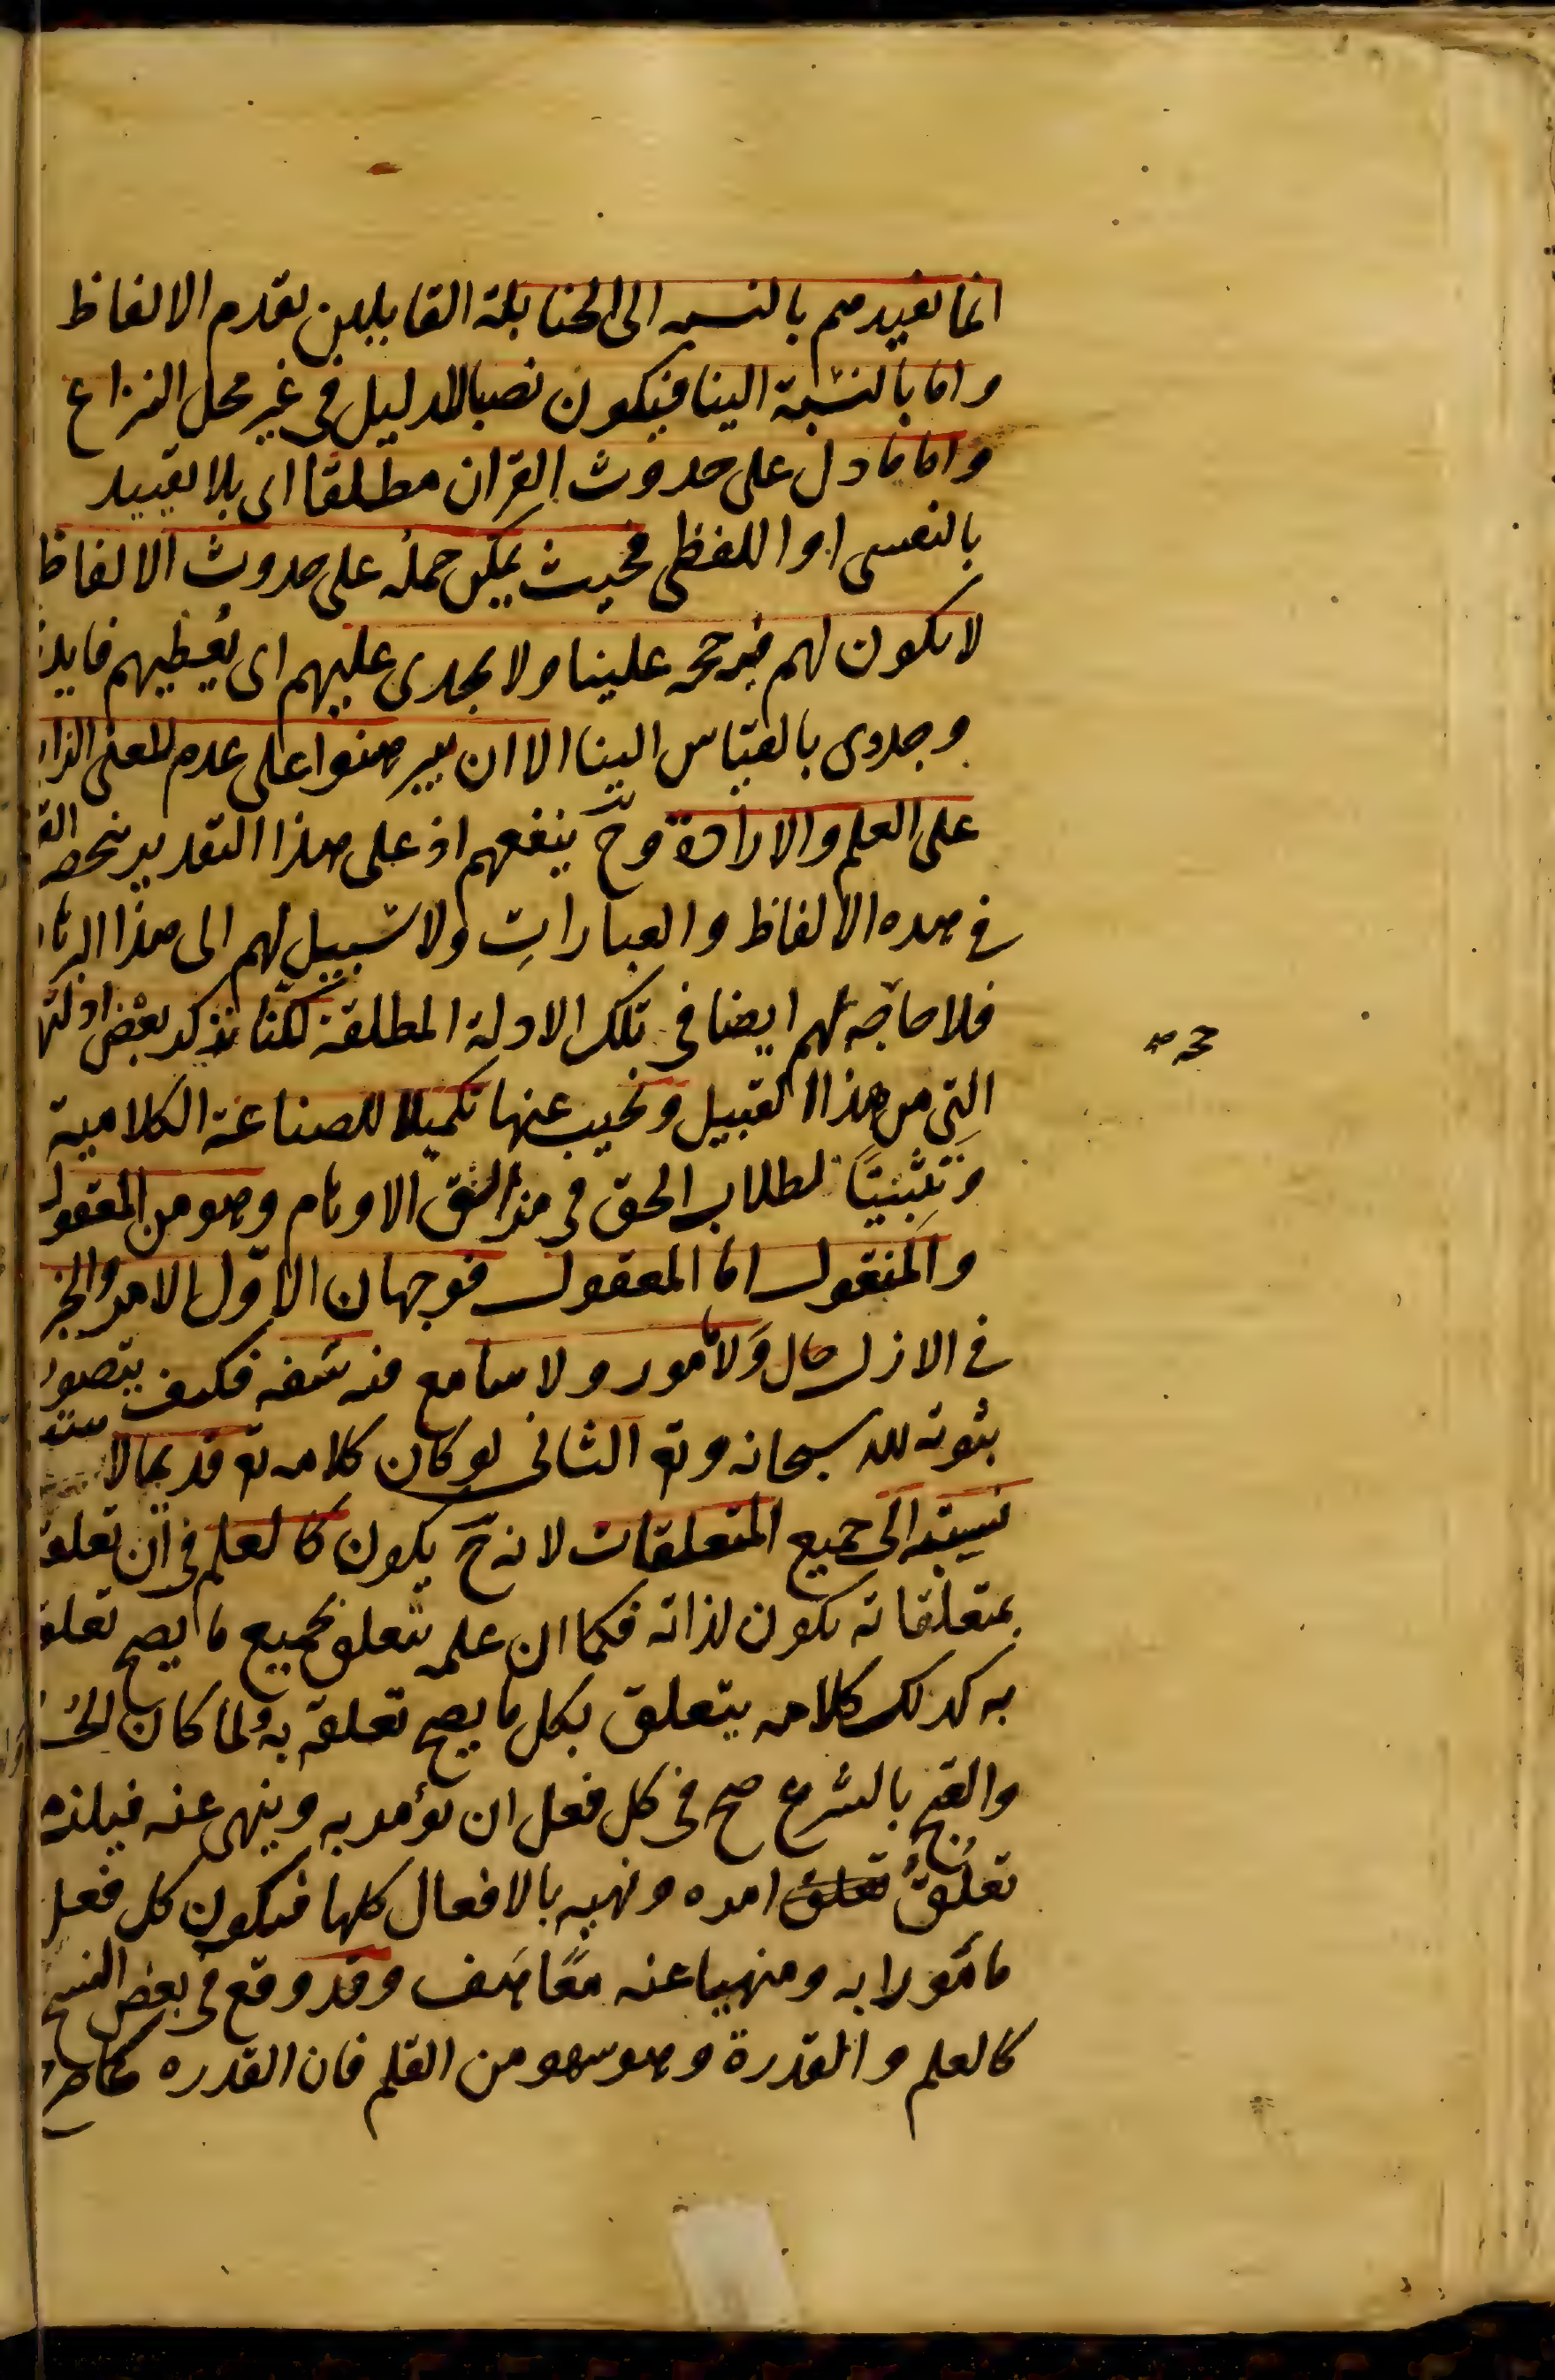 انما تفيدهم بالنسبه الى الحنابلة القايلين بقدم الالفاظ
واما بالنسبة الينا فيكون نصبا للدليل فى غير محل النزاع
واما ما دل على حدوث القران مطلقا اى بلا تقييد
بالنفسى او اللفظى فحيث يمكن حمله على حدوث الالفاظ
لا يكون لهم فيه حجه علينا ولا يجدى عليهم اى يعطيهم فايدة
وجدوى بالقياس الينا الا ان يبرهنوا على عدم المعنى الزا
على العلم والارادة وح ينفعهم اذ على هذا التقدير ينحصر الق
فى هده الالفاظ والعبارات ولا سبيل لهم الى هذا البرها
فلا حاجه لهم ايضا فى تلك الادلة المطلقة لكنا نذكر بعض ادلتهم
التى من هذا القبيل ونجيب عنها تكميلا للصناعة الكلامية
وتثبيتا لطلاب الحق فى مزالق الاوهام وهو من المعقول
والمنقول اما المعقول فوجهان الاول الامر والخبر
فى الازل ولا مامور ولا سامع فيه سفه فكيف يتصور
ثبوته لله سبحانه وتع الثانى لو كان كلامه تع قديما لا ستو
نسبته الى جميع المتعلقات لانه ح يكون كالعلم فى ان تعلقه
بمتعلقاته يكون لذاته فكما ان علمه يتعلق بجميع ما يصح تعلقه
به كدلك كلامه يتعلق بكل ما يصح تعلقه به ولما كان الحسن
والقبح بالشرع صح فى كل فعل ان يؤمر به وينهى عنه فيلزم
تعلق تعلق امره ونهيه بالافعال كلها فيكون كل فعل
مأمورا به ومنهيا عنه معا هف وقد وقع فى بعض النسخ
كالعلم والقدرة وهو سهو من القلم فان القدره